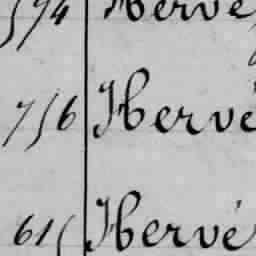 574 Hervé
756 Hervé
615 Hervé